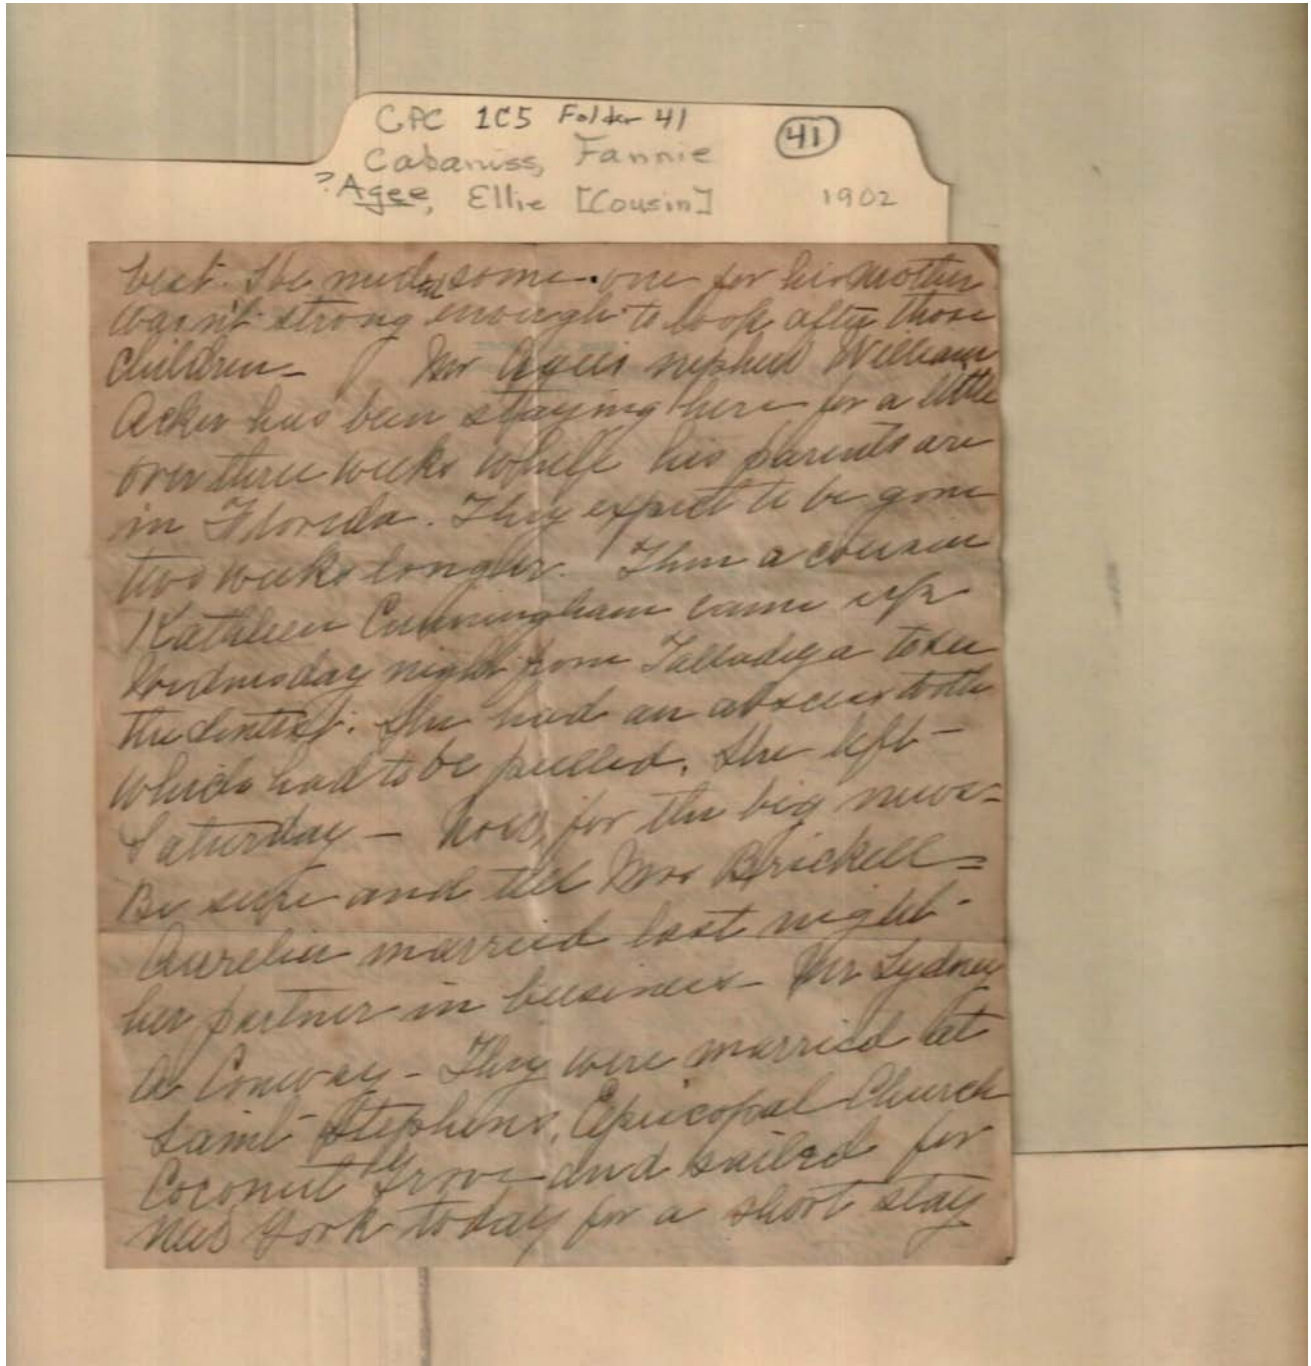 CPC 1C5 Folder 41
41
Cabaniss, Fannie
?Agee, Ellie [Cousin] 1902
best. She needed some one for his mother
wasn't strong enough to look after those
children— Mr Agee's nephew William
Acker has been staying here for a little
over three weeks while his parents are
in Florida. They expect to be gone
two weeks longer. Then a cousin
Kathleen Cunningham came up
Wednesday night from Talladega to see
the dentist. She had an abscess tooth
which had to be pulled. She left—
Saturday — Now, for the big news=
Be sure and tell Mrs Brickell=
Aurelia married last night-
her partner in business— Mr Sydney
A Conway— They were married at
Saint Stephens, Episcopal Church
Coconut Grove and sailed for
New York today for a short stay